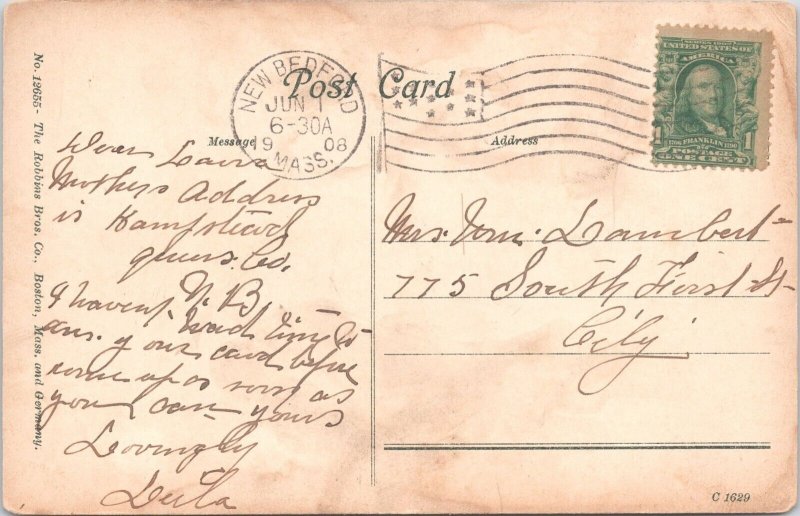 Post Card
NEW BEDFORD
JUN 1
6-30A
1908
MASS.
UNITED STATES OF
AMERICA
1 FRANKLIN 1
POSTAGE
ONE CENT
Message
Address
Dear Laura
Mothers Address
is Hampstead
Queens. Co.
N. B
I havent had time to
ans. your card before
come up as soon as
you can yours
Lovingly
Mrs. Wm. Lambert
775 South First St
City
No. 12655- The Robbins Bros. Co., Boston, Mass. and Germany.
C 1629